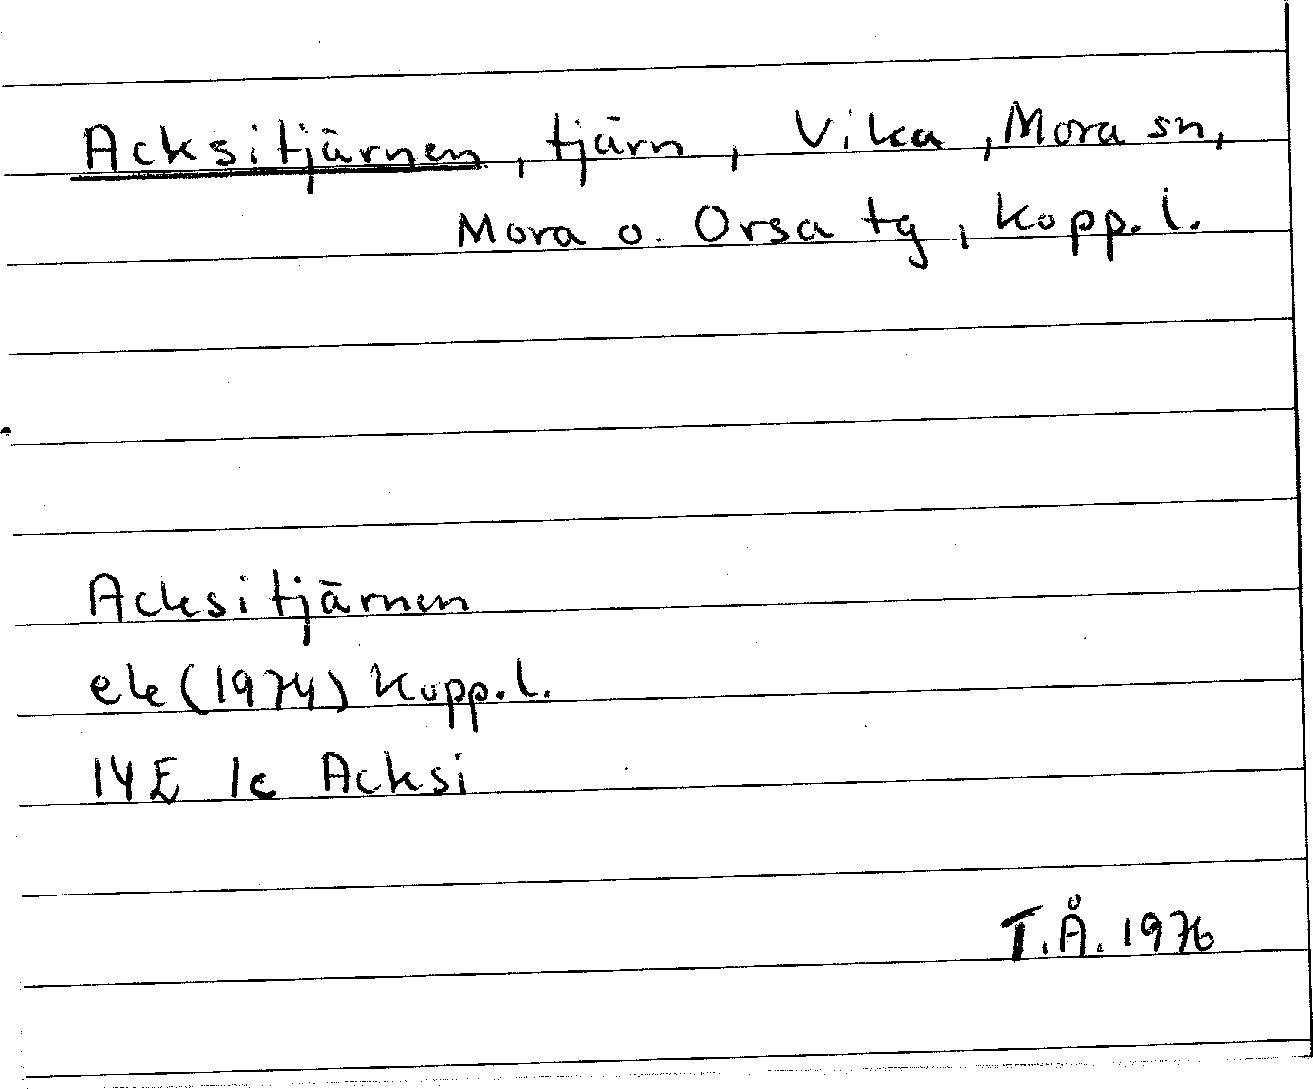 Acksitjärnen, tjärn, Vika, Mora sn,
Mora o. Orsa tg, Kopp. l.
Acksitjärnen
ek (1974) Kopp. l.
14E 1c Acksi
T.Å. 1976